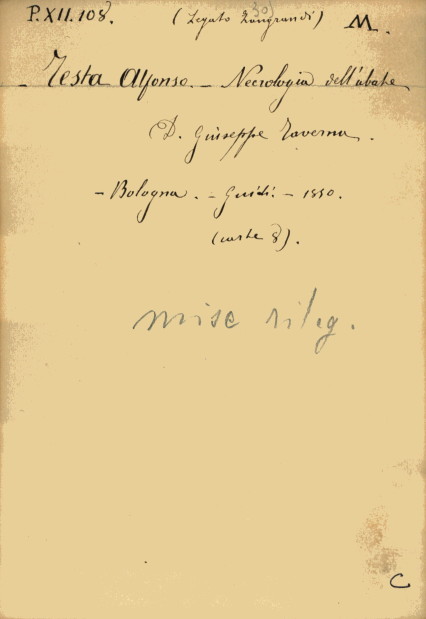 P.XII.108. (Legato Zangrandi) M.
- Testa Alfonso. - Necrologia dell'abate
D. Giuseppe Taverna.
- Bologna. - Guidi. - 1850.
(carte 8).
misc rileg.
C